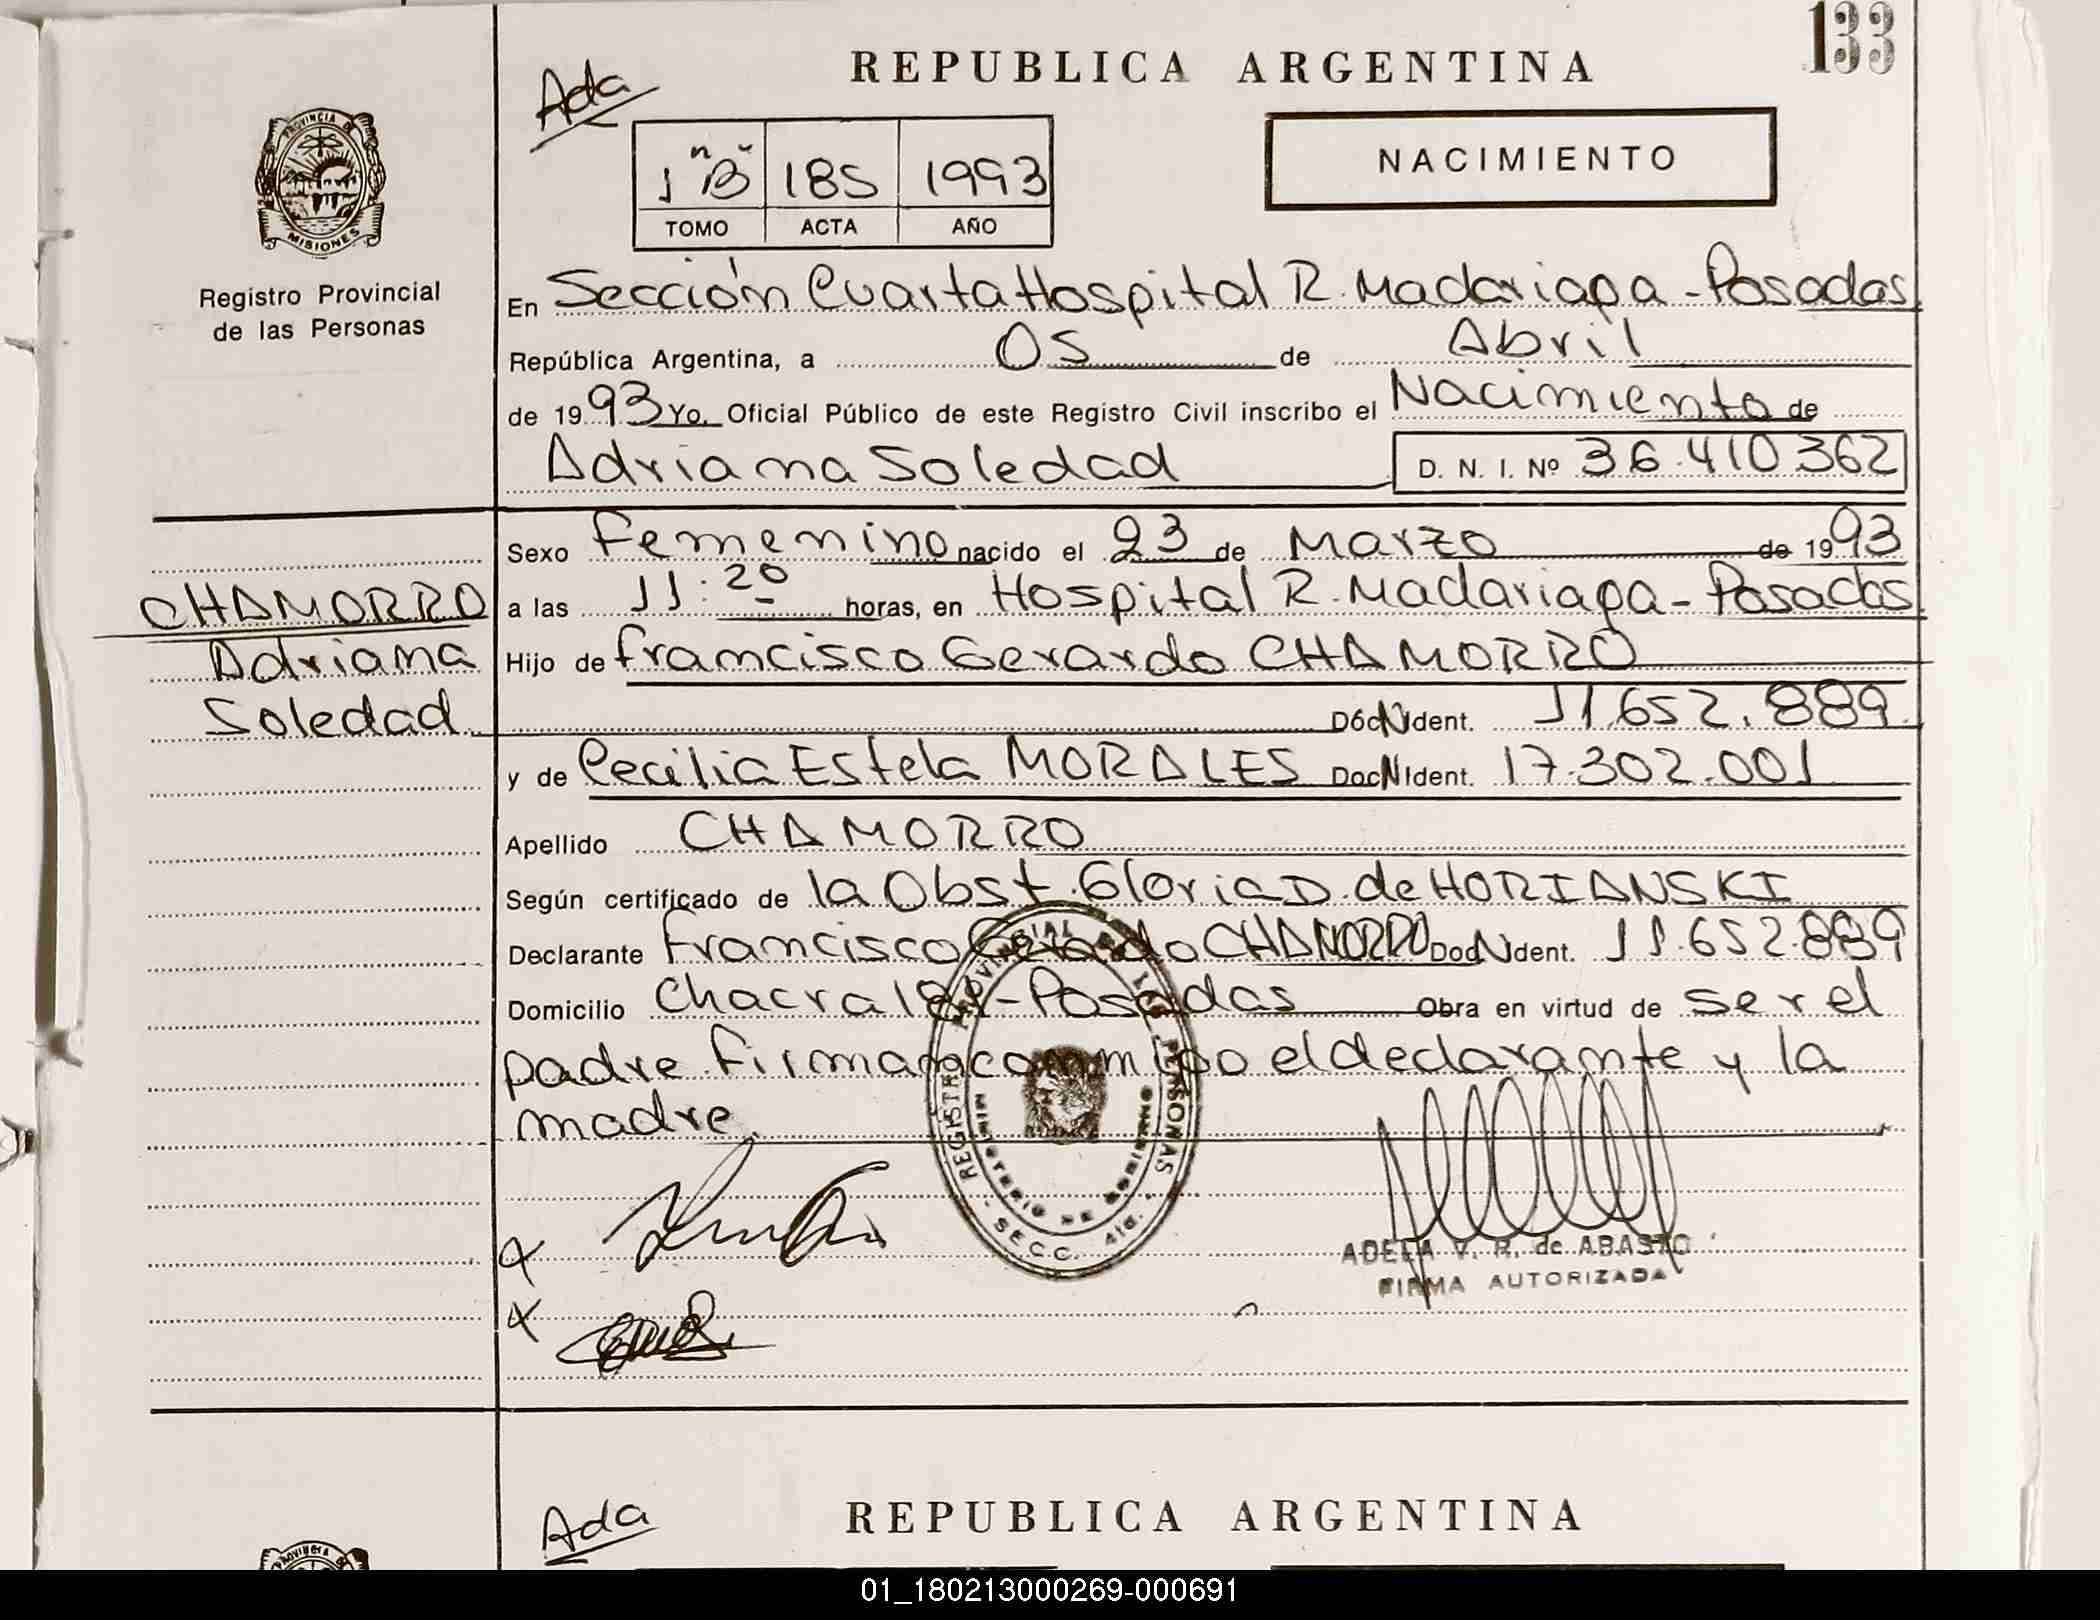 133
REPUBLICA ARGENTINA
Ada
NACIMIENTO
1 "B" 185 1993
TOMO ACTA AÑO
PROVINCIA DE
MISIONES
Registro Provincial
de las Personas
En Sección Cuarta Hospital R. Madariaga - Posadas
República Argentina, a 05 de Abril
de 1993 Yo, Oficial Público de este Registro Civil inscribo el Nacimiento de
Adriana Soledad D. N. I. Nº 36.410.362
Sexo Femenino nacido el 23 de Marzo de 1993
CHAMORRO
Adriana
Soledad
a las 11:20 horas, en Hospital R. Madariaga - Posadas
Hijo de Francisco Gerardo CHAMORRO
DócNIdent. 11.652.889
y de Cecilia Estela MORALES DocNIdent. 17.302.001
Apellido CHAMORRO
Según certificado de la Obst. Gloria D. de HORIANSKI
Declarante Francisco Gerardo CHAMORRO DocNIdent. 11.652.889
Domicilio Chacra 181 - Posadas Obra en virtud de ser el
padre. Firman conmigo el declarante y la
madre.
REGISTRO PROVINCIAL DE LAS PERSONAS
MINISTERIO DE GOBIERNO
SECC. 4ta.
ADELA V. R. de ABASTO
FIRMA AUTORIZADA
Ada
REPUBLICA ARGENTINA
PROVINCIA
01_180213000269-000691